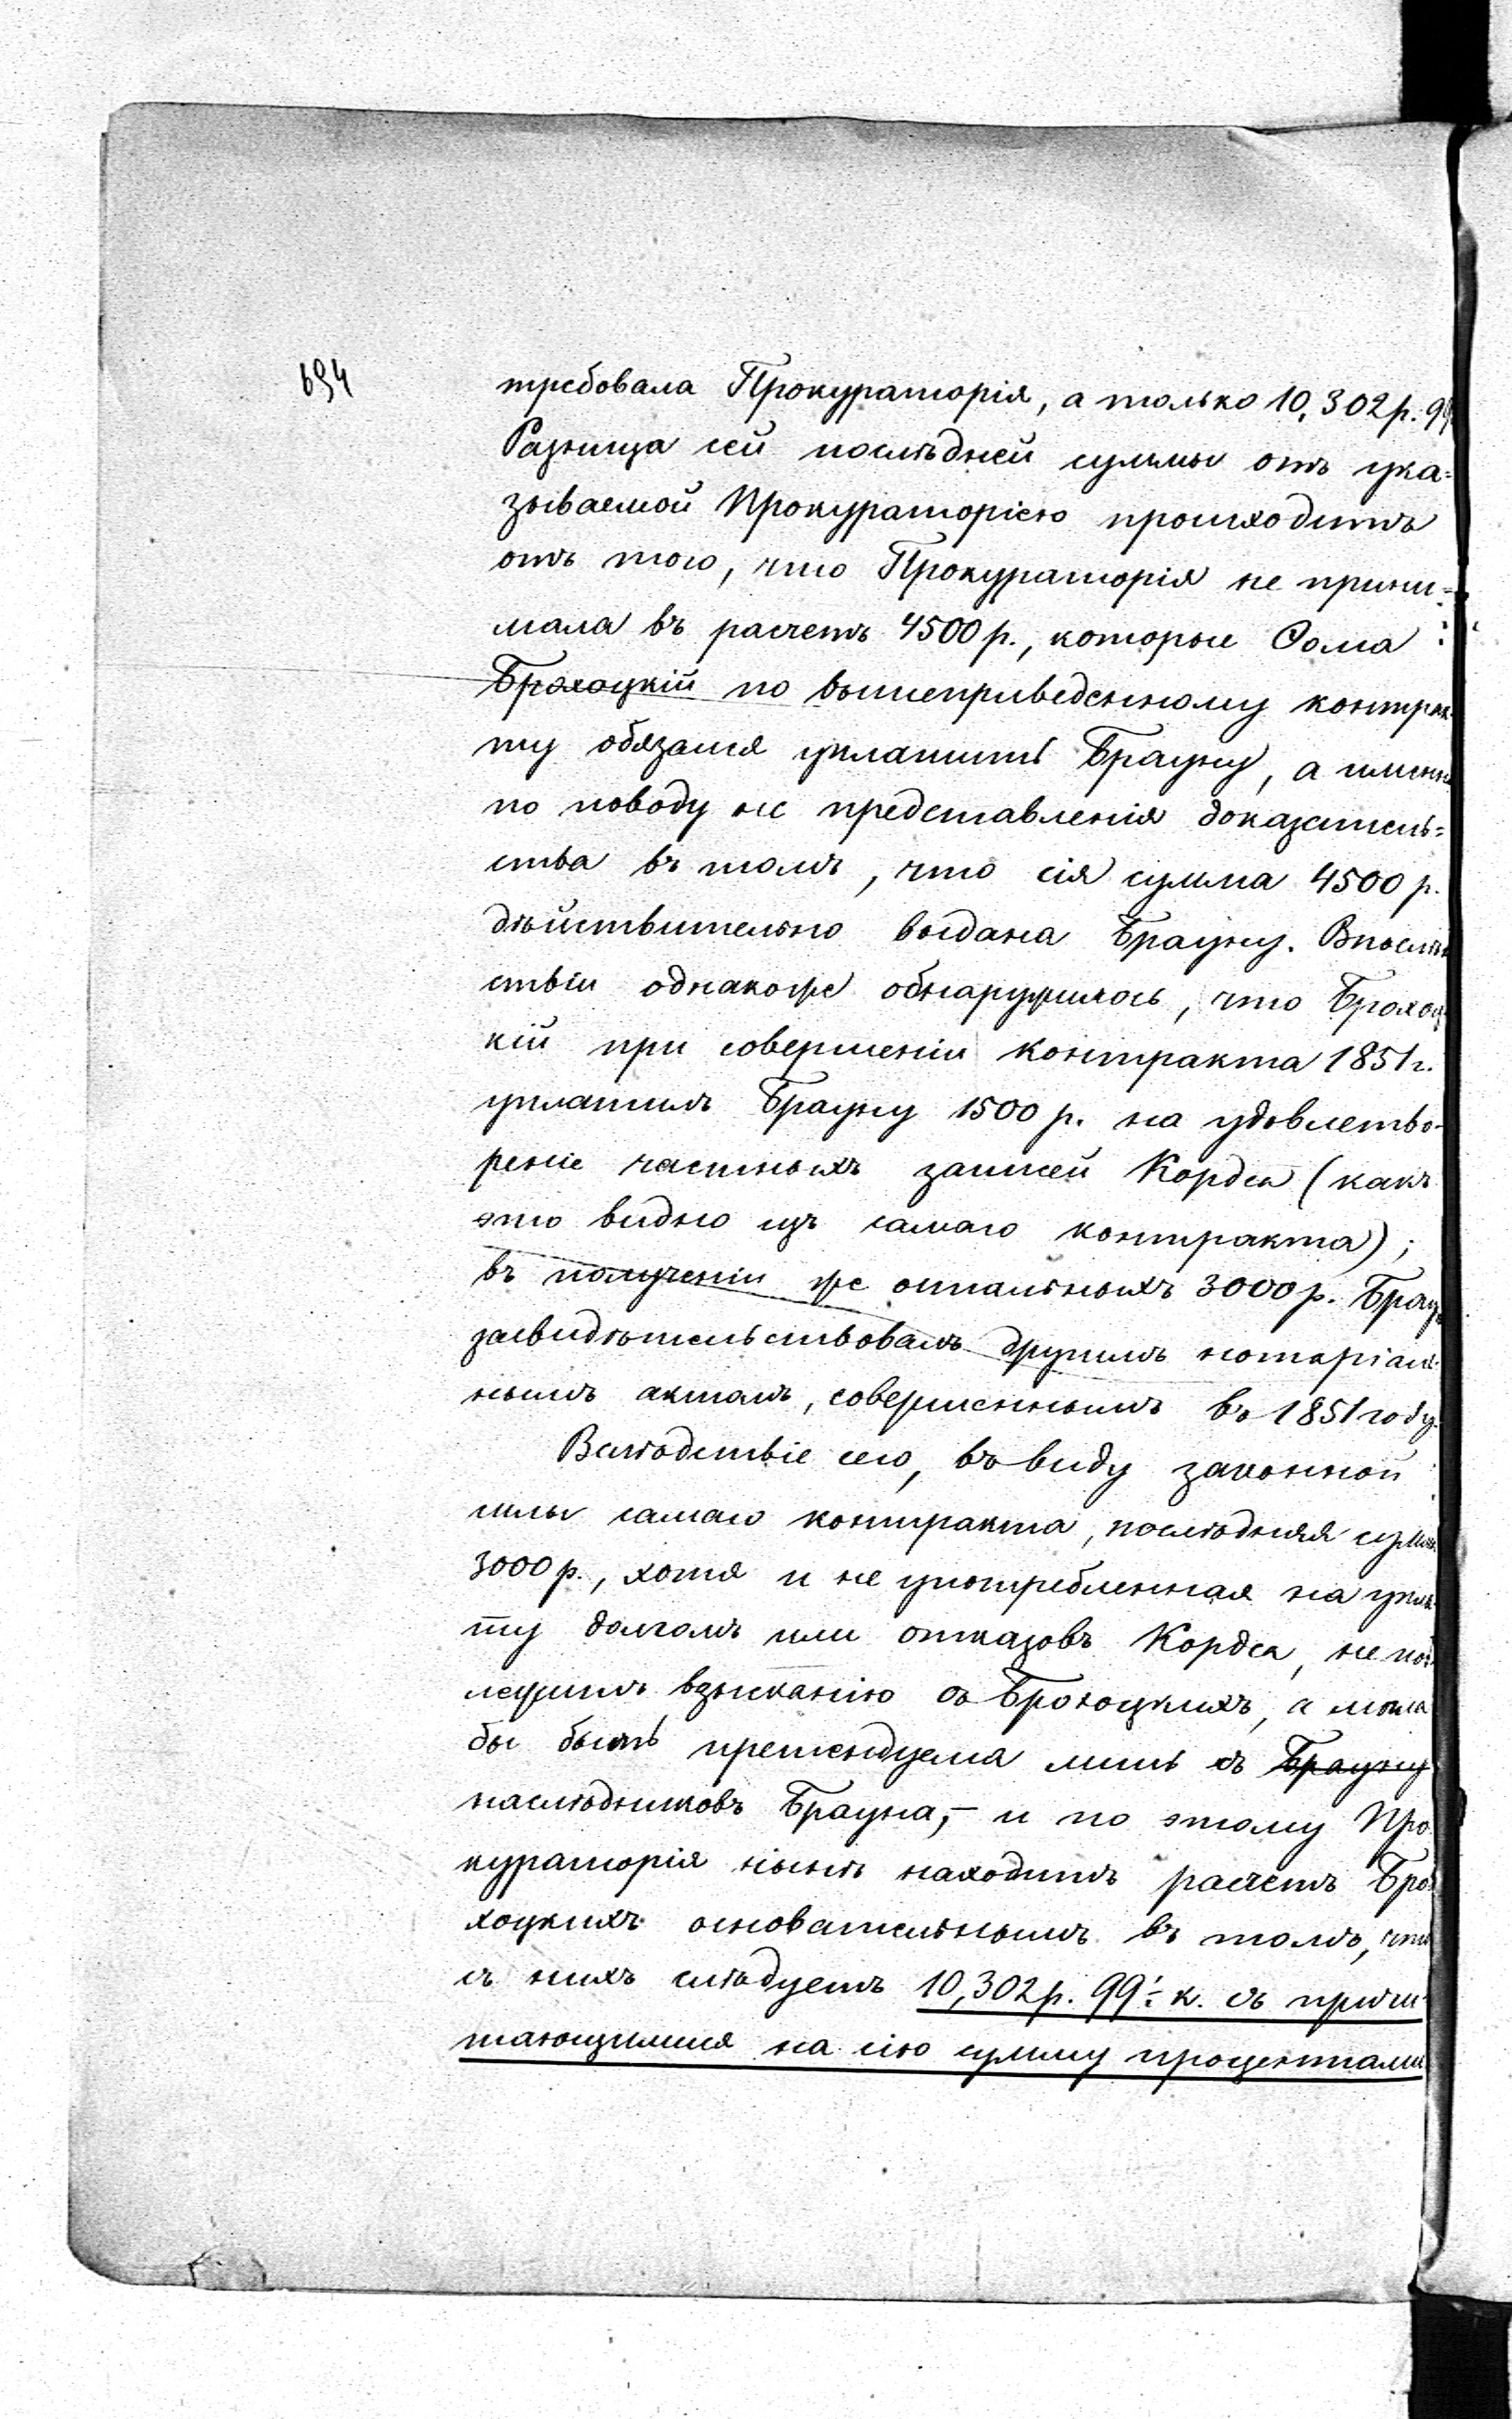 694
требовала Прокураторія, а только 10,302 р. 99
Разница сей послѣдней суммы отъ ука-
зываемой Прокураторіею происходитъ
отъ того, что Прокураторія не прини-
мала въ расчетъ 4500 р., которые Ѳома
Брохоцкій по вышеприведенному контрак
ту обязался уплатить Брауну, а именно
по поводу не представленія доказатель-
ства въ томъ, что сія сумма 4500 р.
дѣйствительно выдана Брауну. Впослѣд
ствіи однакоже обнаружилось, что Брохоц
кій при совершеніи контракта 1851 г.
уплатилъ Брауну 1500 р. на удовлетво-
реніе частныхъ записей Кордса (какъ
это видно изъ самаго контракта);
въ полученіи же остальныхъ 3000 р. Браунъ
засвидѣтельствовалъ другимъ нотаріаль
нымъ актомъ, совершеннымъ въ 1851 году.
Вслѣдствіе сего, въ виду законной
силы самаго контракта, послѣдняя сумма
3000 р., хотя и не употребленная на упла
ту долгомъ или отказовъ Кордса, не под
лежитъ взысканію съ Брохоцкихъ, а могла
бы быть претендуема лишь съ Брауну
наслѣдниковъ Брауна, – и по этому Про
кураторія нынѣ находитъ расчетъ Бро
хоцкихъ основательнымъ въ томъ, что
съ нихъ слѣдуетъ 10,302 р. 99 к. съ причи
тающимися на сію сумму процентами